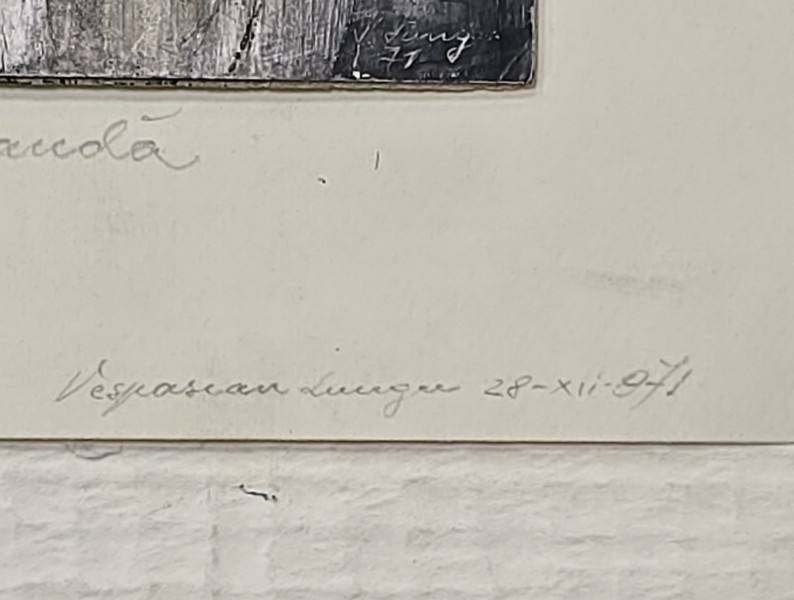 V. Lungu
71
andă
Vespasian Lungu 28-XII-971